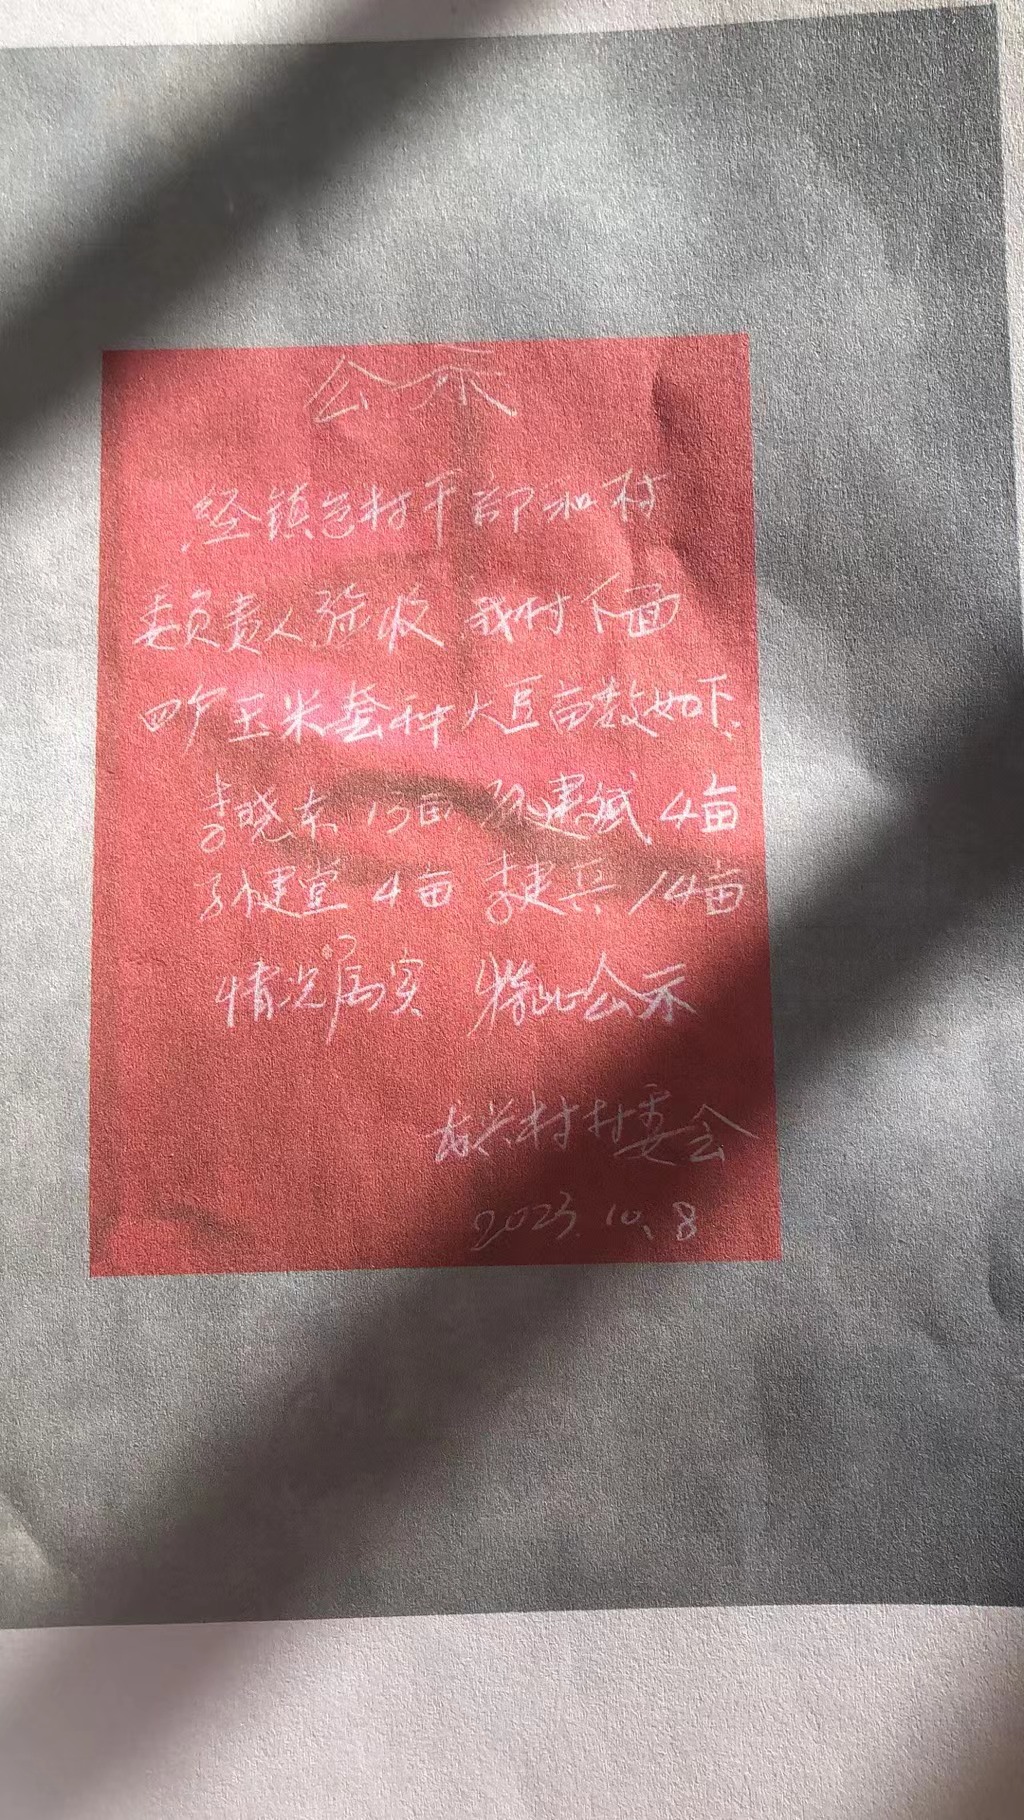 公示
经镇包村干部和村
委负责人验收 我村下面
四户玉米套种大豆亩数如下
李晓东 13亩 孙建斌 4亩
孙建堂 4亩 李建兵 14亩
情况属实 特此公示
兴村村委会
2023.10.8